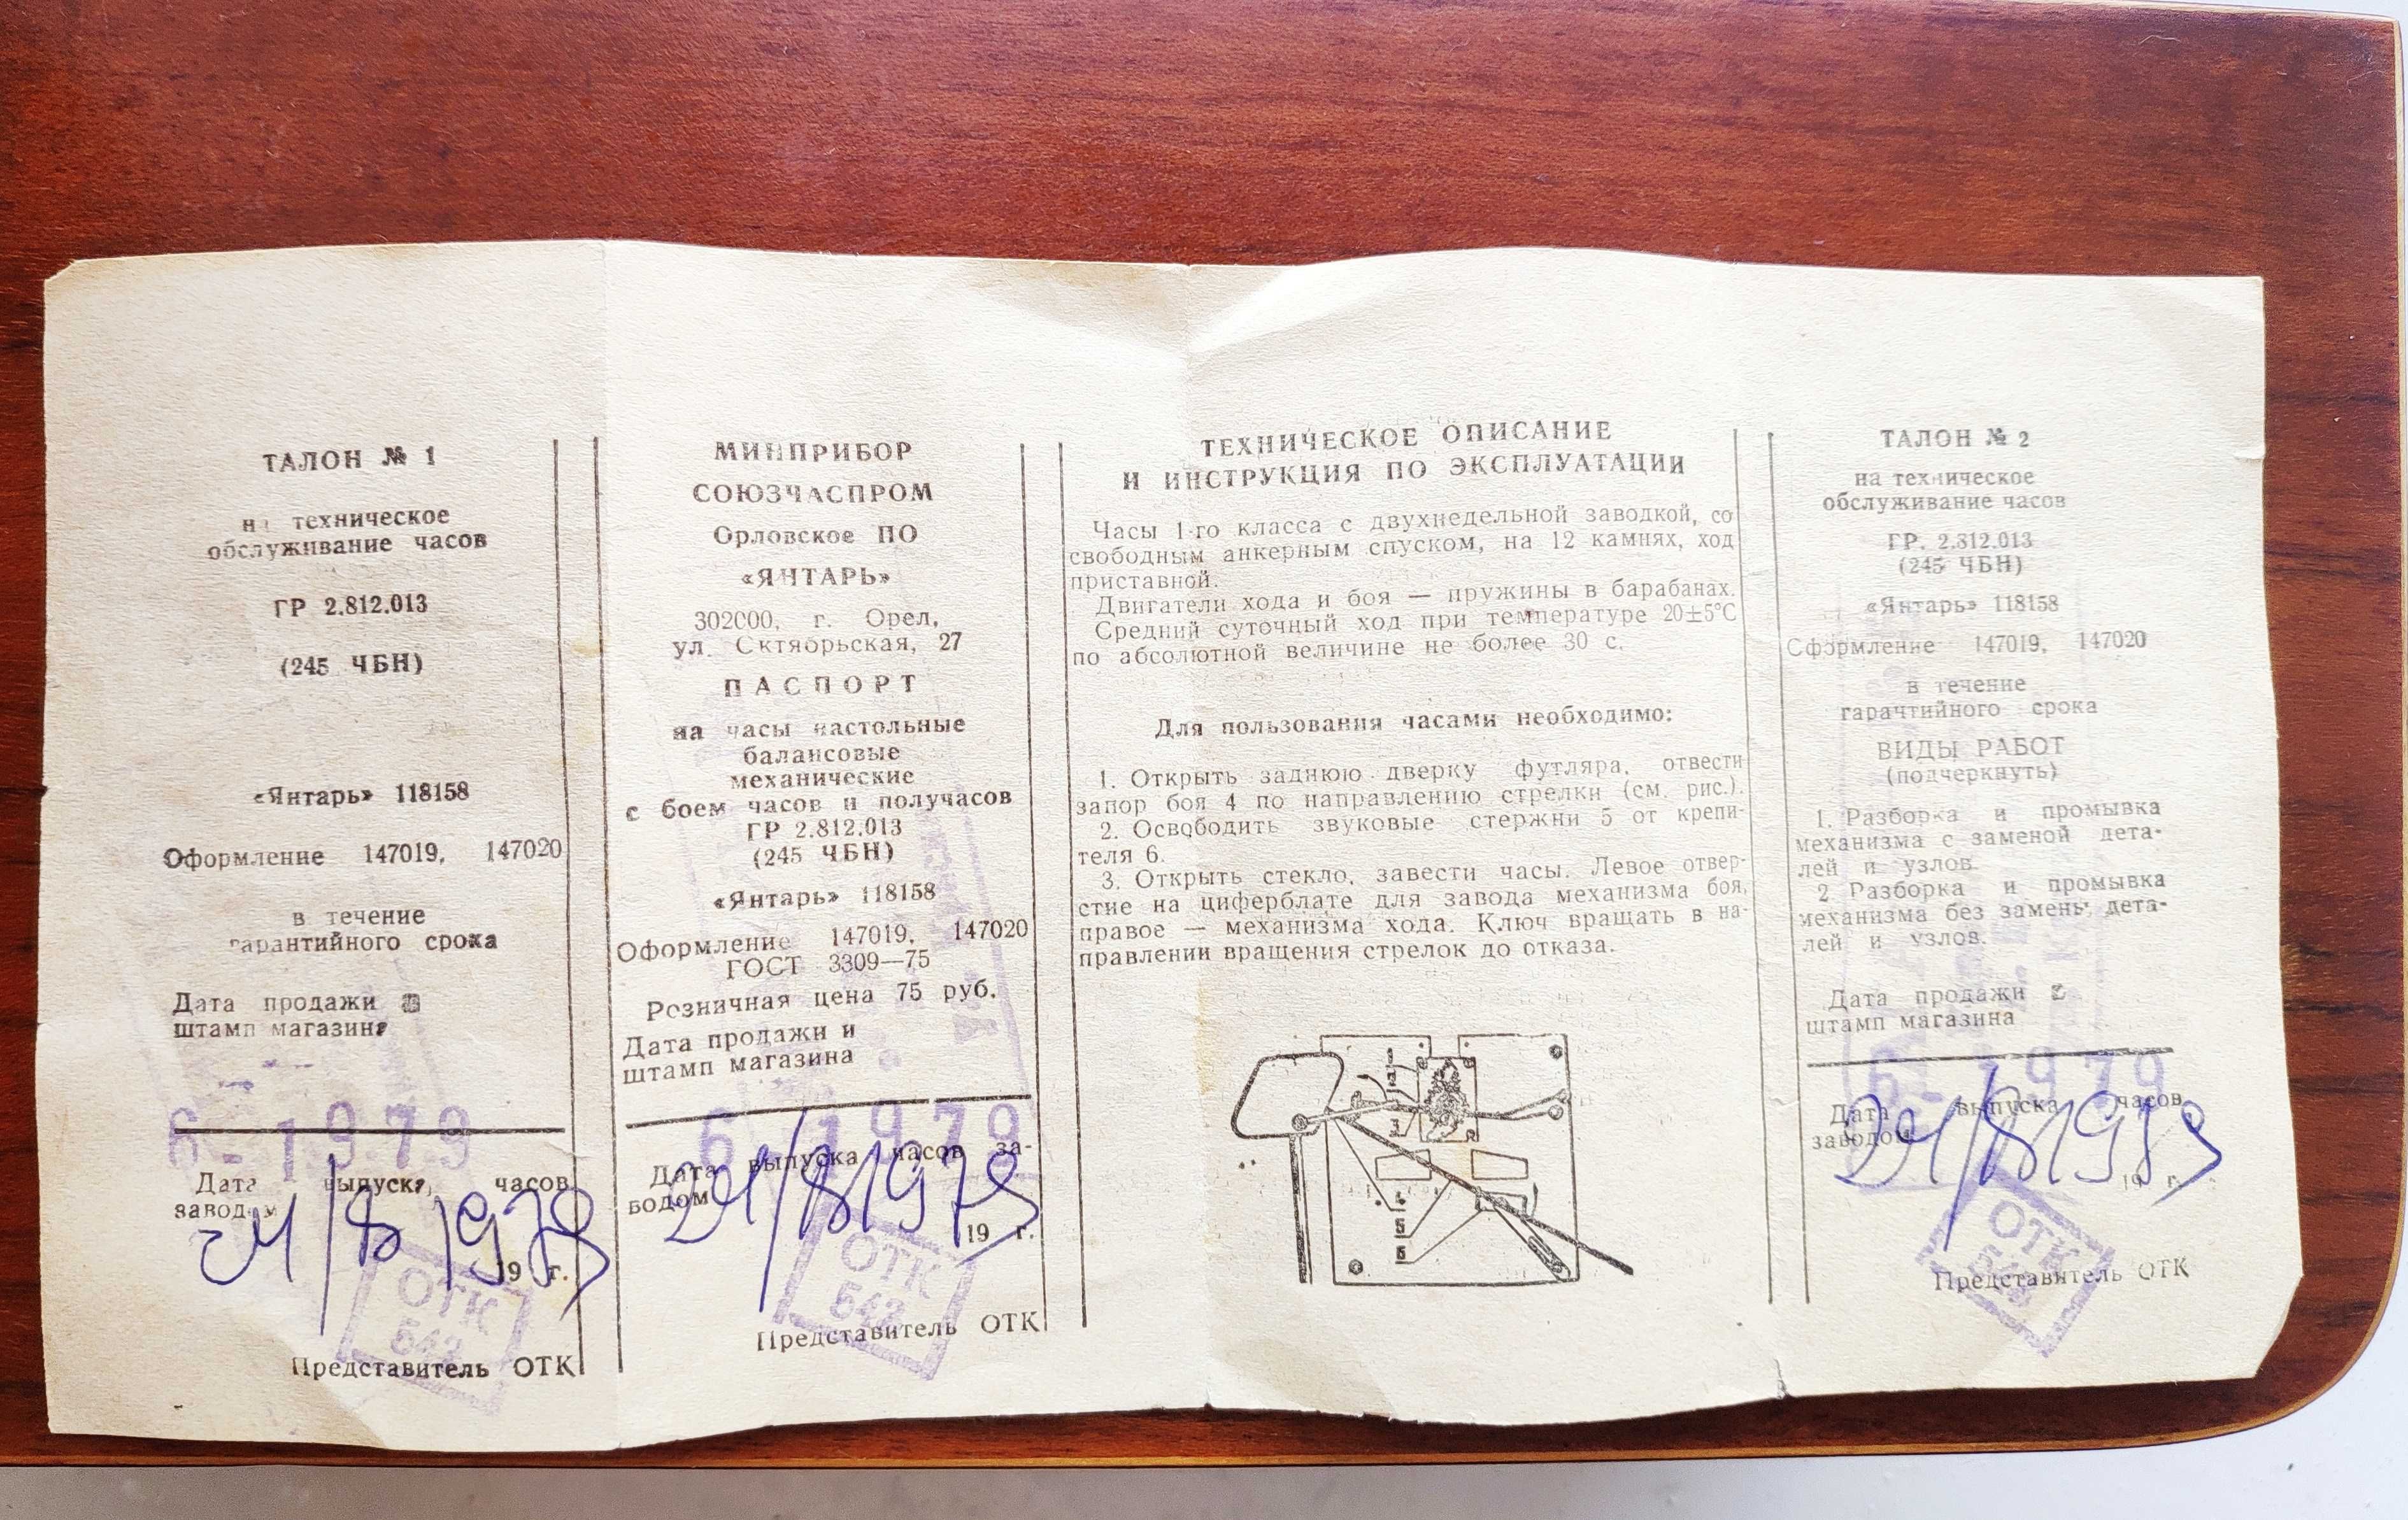 ТАЛОН № 1
на техническое
обслуживание часов
ГР 2.812.013
(245 ЧБН)
«Янтарь» 118158
Оформление 147019, 147020
в течение
гарантийного срока
Дата продажи и
штамп магазина
6-1979
Дата выпуска часов
заводом
24/8 1979
19 г.
ОТК
542
Представитель ОТК
МИНПРИБОР
СОЮЗЧАСПРОМ
Орловское ПО
«ЯНТАРЬ»
302000, г. Орел,
ул. Октябрьская, 27
ПАСПОРТ
на часы настольные
балансовые
механические
с боем часов и получасов
ГР 2.812.013
(245 ЧБН)
«Янтарь» 118158
Оформление 147019, 147020
ГОСТ 3309—75
Розничная цена 75 руб.
Дата продажи и
штамп магазина
6-1979
Дата выпуска часов за-
водом
24/8 1979
19 г.
ОТК
542
Представитель ОТК
ТЕХНИЧЕСКОЕ ОПИСАНИЕ
И ИНСТРУКЦИЯ ПО ЭКСПЛУАТАЦИИ
Часы 1-го класса с двухнедельной заводкой, со
свободным анкерным спуском, на 12 камнях, ход
приставной.
Двигатели хода и боя — пружины в барабанах.
Средний суточный ход при температуре 20±5°С
по абсолютной величине не более 30 с.
Для пользования часами необходимо:
1. Открыть заднюю дверку футляра, отвести
запор боя 4 по направлению стрелки (см. рис.).
2. Освободить звуковые стержни 5 от крепи-
теля 6.
3. Открыть стекло, завести часы. Левое отвер-
стие на циферблате для завода механизма боя,
правое — механизма хода. Ключ вращать в на-
правлении вращения стрелок до отказа.
1
2
3
4
5
6
ТАЛОН № 2
на техническое
обслуживание часов
ГР. 2.812.013
(245 ЧБН)
«Янтарь» 118158
Оформление 147019, 147020
в течение
гарантийного срока
ВИДЫ РАБОТ
(подчеркнуть)
1. Разборка и промывка
механизма с заменой дета-
лей и узлов.
2. Разборка и промывка
механизма без замены дета-
лей и узлов.
Дата продажи и
штамп магазина
6-1979
Дата выпуска часов
заводом
24/8 1979
19 г.
ОТК
542
Представитель ОТК